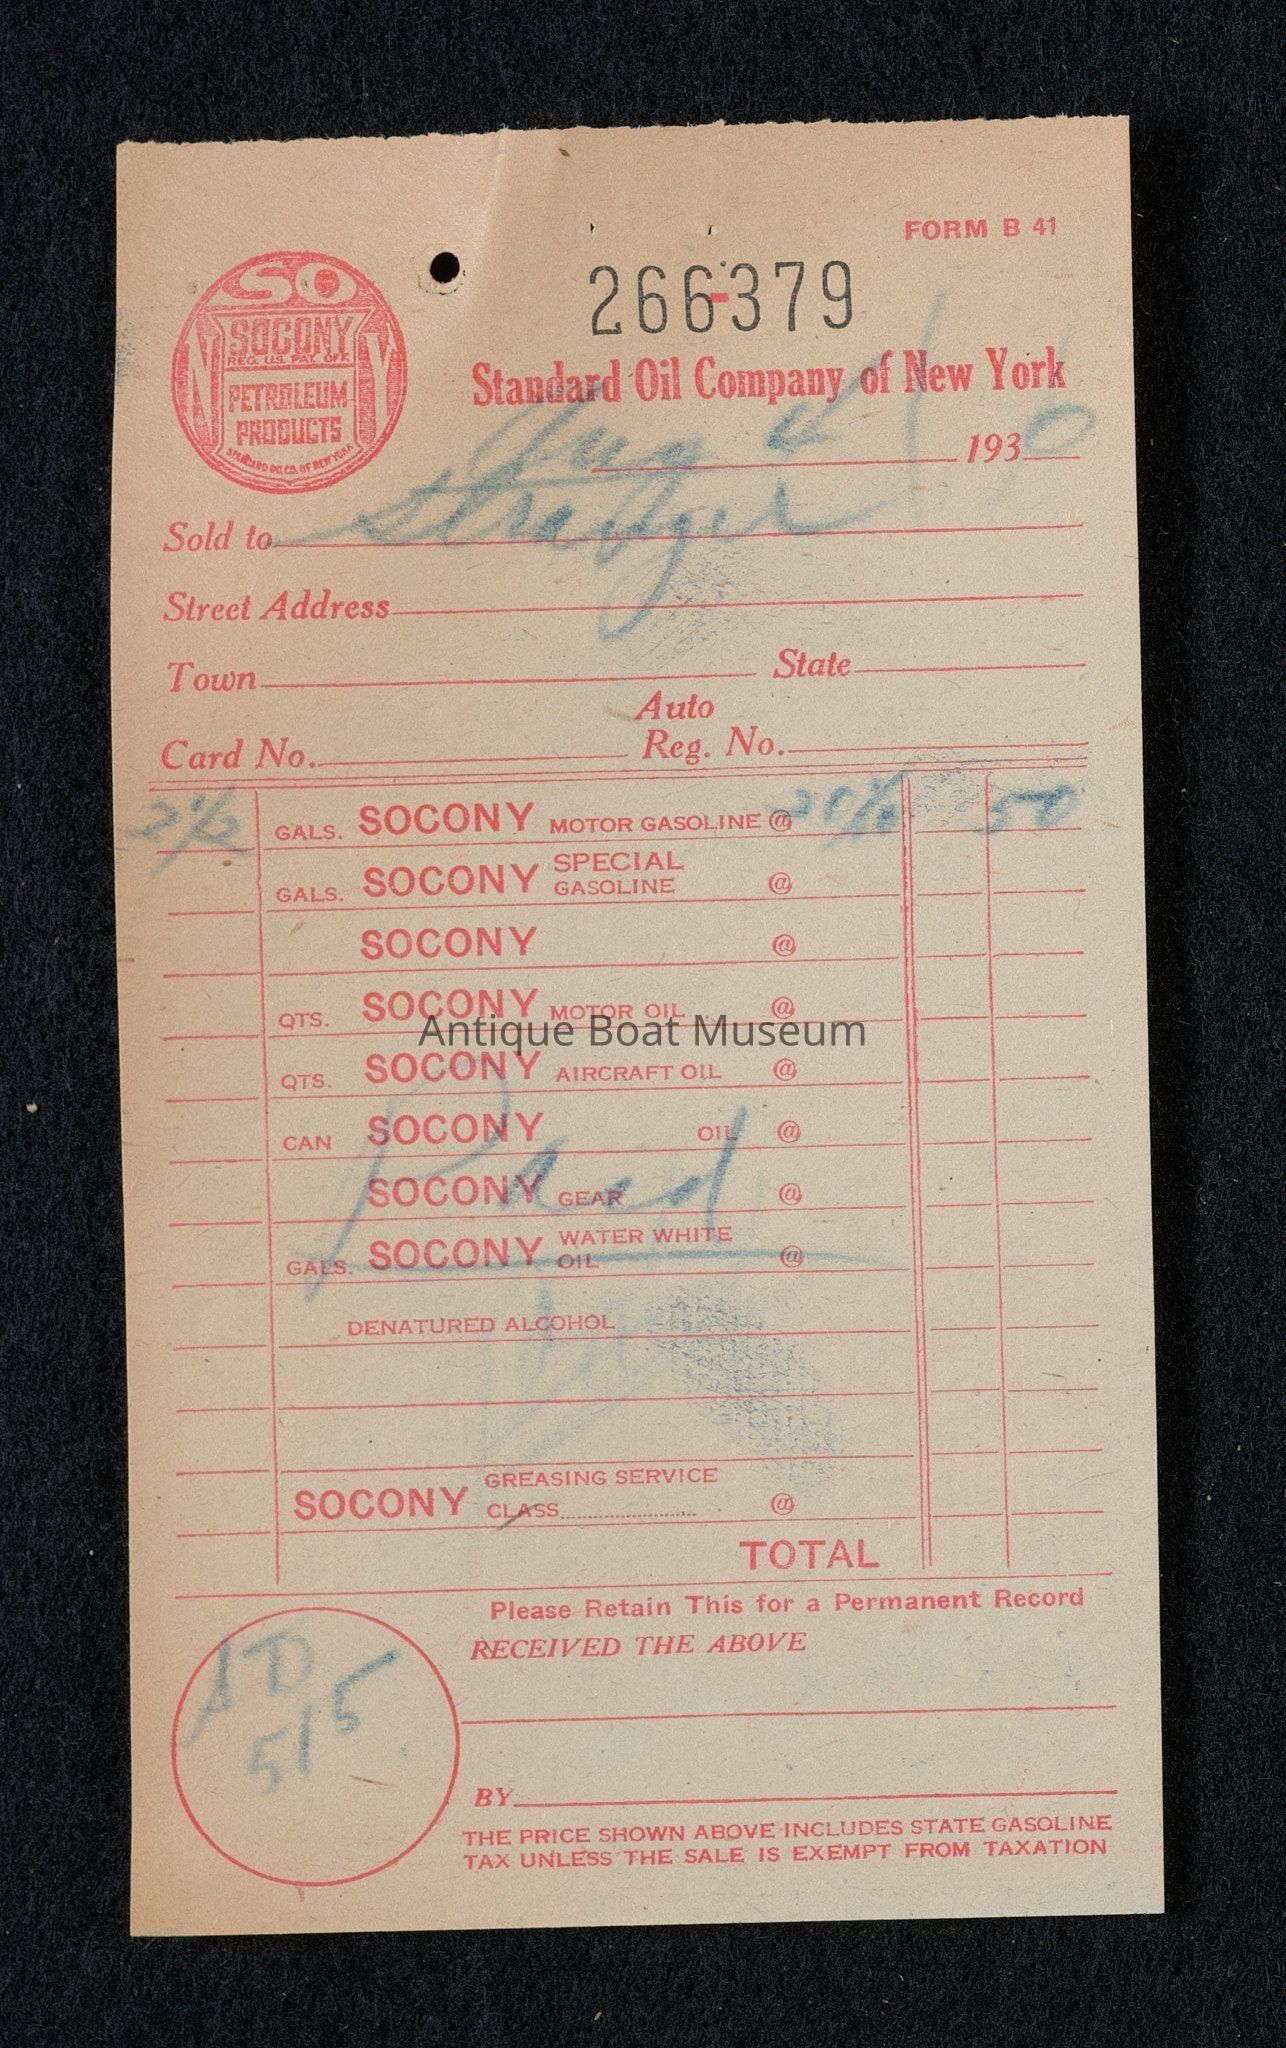 FORM B 41
266-379
SO
SOCONY
REG. U.S. PAT. OFF.
N Y
PETROLEUM
PRODUCTS
STANDARD OIL CO. OF NEW YORK
Standard Oil Company of New York
Aug 4 1930
Sold to Stranger
Street Address
Town State
Auto
Card No. Reg. No.
2 1/2 GALS. SOCONY MOTOR GASOLINE @ 20 1/2 50
GALS. SOCONY SPECIAL GASOLINE @
SOCONY @
QTS. SOCONY MOTOR OIL @
Antique Boat Museum
QTS. SOCONY AIRCRAFT OIL @
CAN SOCONY OIL @
Paid
SOCONY GEAR @
GALS. SOCONY WATER WHITE OIL @
DENATURED ALCOHOL
SOCONY GREASING SERVICE CLASS @
TOTAL
Please Retain This for a Permanent Record
RECEIVED THE ABOVE
515
BY
THE PRICE SHOWN ABOVE INCLUDES STATE GASOLINE
TAX UNLESS THE SALE IS EXEMPT FROM TAXATION